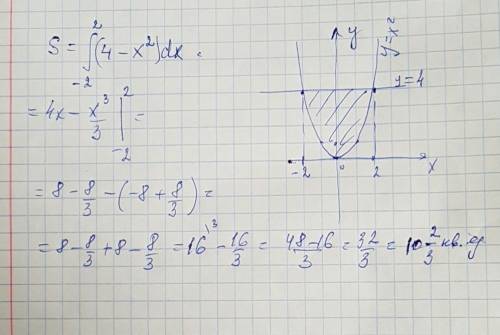 S = ∫₋₂² (4 − x²)dx.
= 4x − x³/3 |₋₂² =
= 8 − 8/3 − (−8 + 8/3) =
= 8 − 8/3 + 8 − 8/3 = 16\³ − 16/3 = 48−16/3 = 32/3 = 10 2/3 кв.ед
y
y=x²
y=4
-2
0
2
x